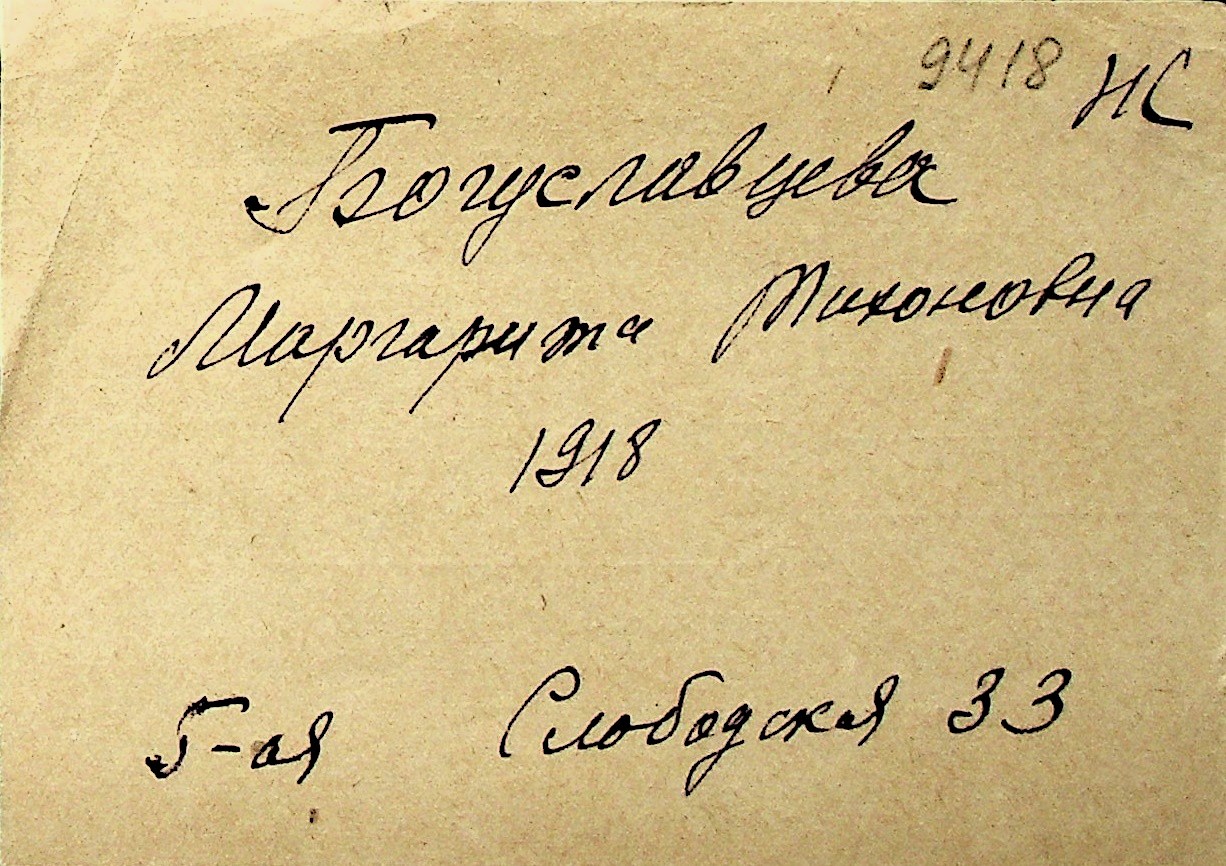 9418 НС
Богуславцева
Маргарита Тихоновна
1918
5-ая Слободская 33